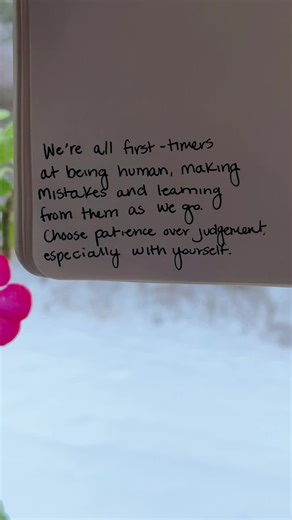 We're all first-timers
at being human, making
mistakes and learning
from them as we go.
Choose patience over judgement,
especially with yourself.